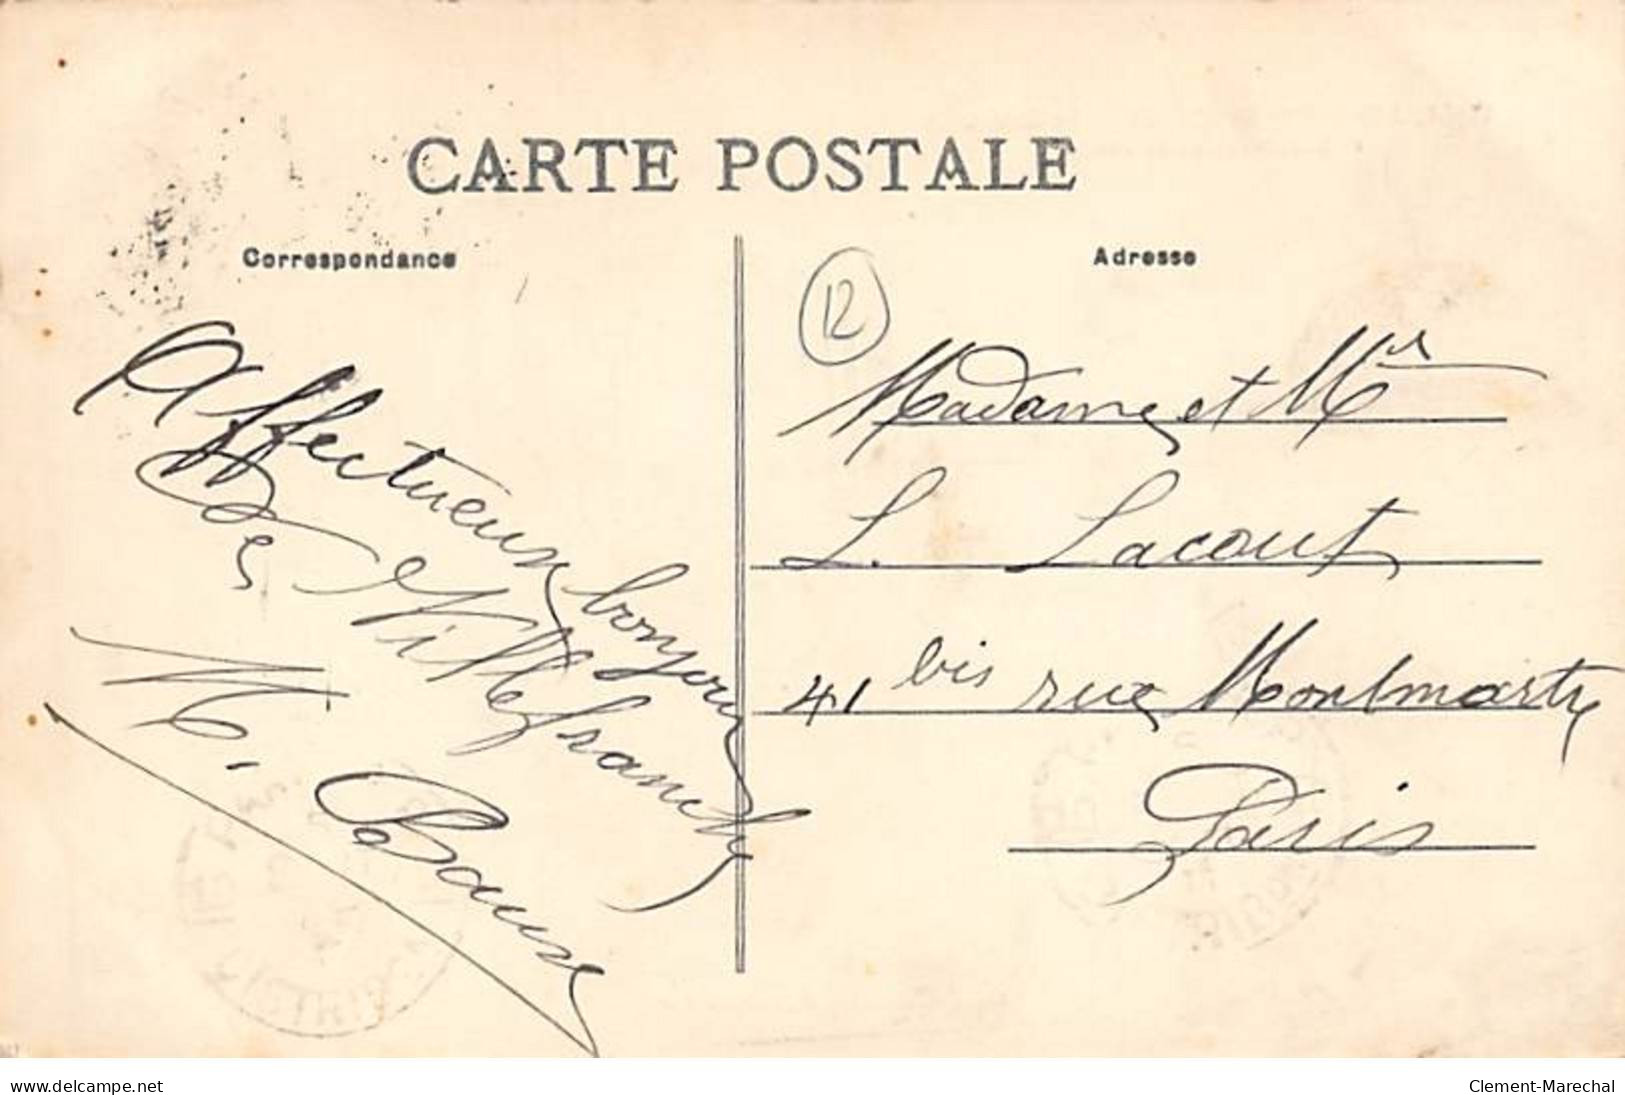 CARTE POSTALE
Correspondance
Adresse
12
Affectueux bonjour
de Villefranche
Madame et Mr
L. Lacout
41 bis rue Montmartre
Paris
www.delcampe.net
Clement-Marechal